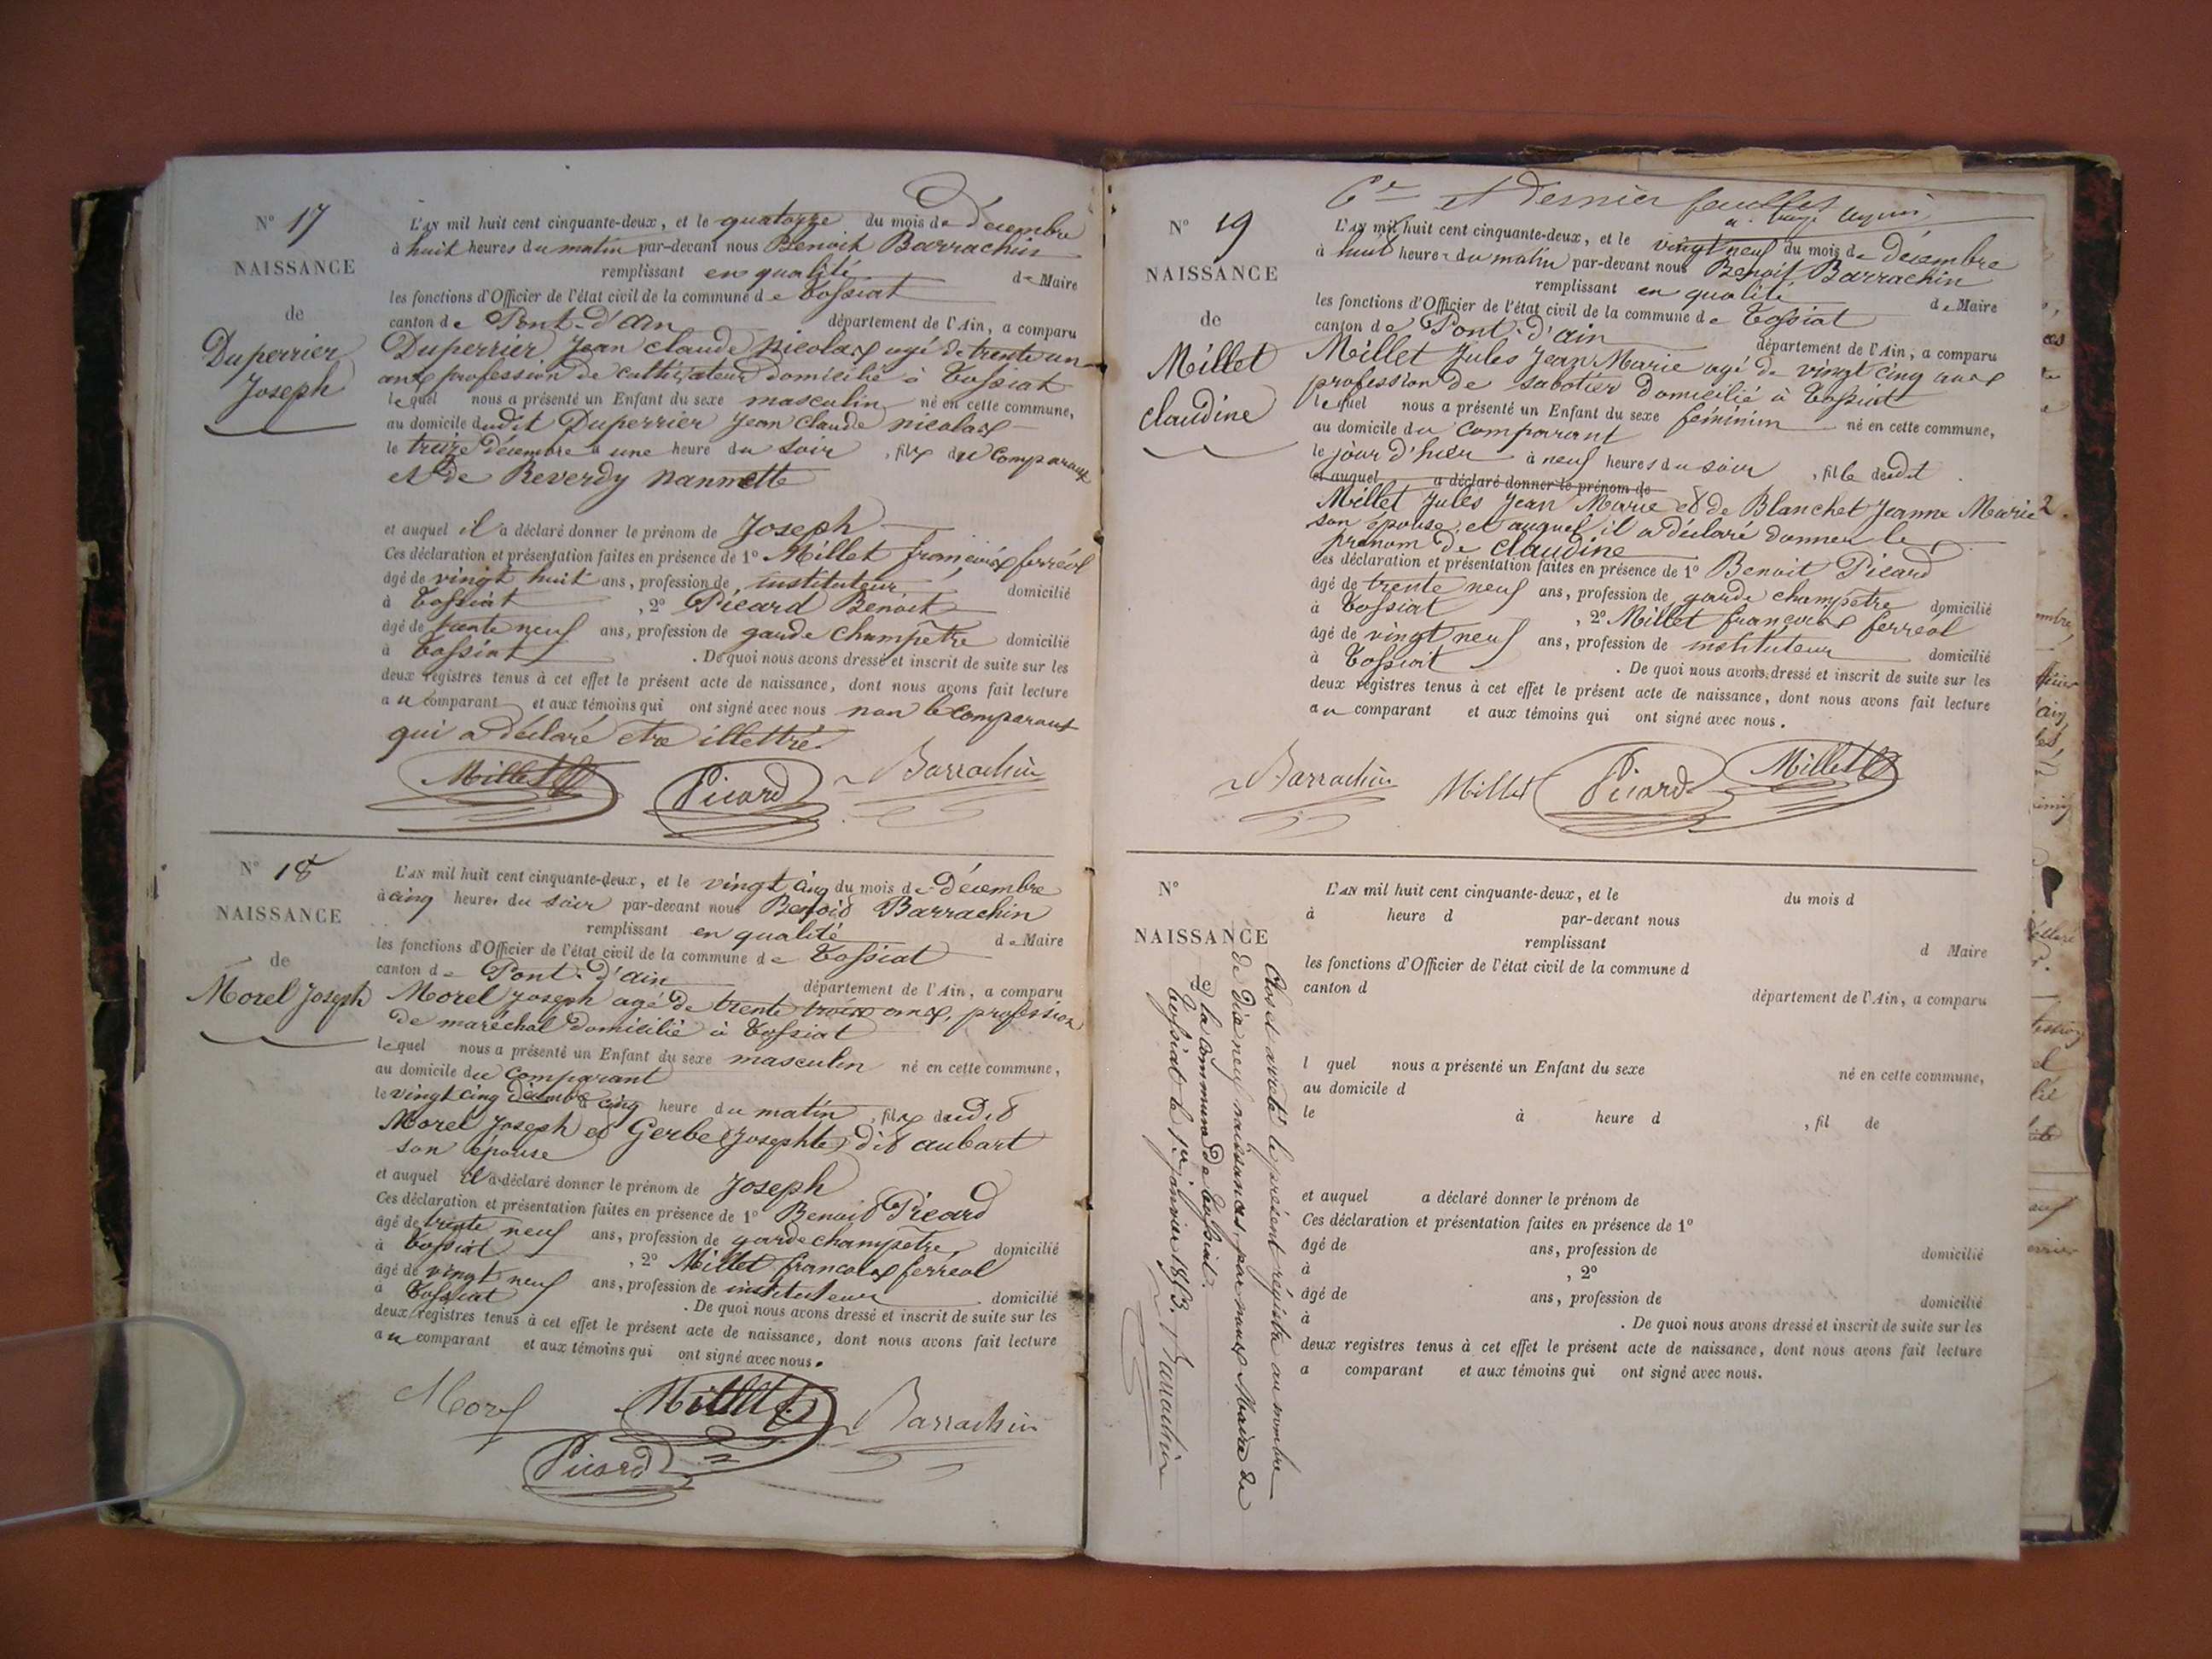 N° 17
NAISSANCE
de
Duperrier
Joseph
L'AN mil huit cent cinquante-deux, et le quatorze du mois de Décembre
à huit heures du matin par-devant nous Benoit Barrachin
remplissant en qualité de Maire
les fonctions d'Officier de l'état civil de la commune de Tossiat
canton de Pont-d'ain département de l'Ain, a comparu
Duperrier Jean claude Nicolas agé de trente un
ans profession de cultivateur domicilié à Tossiat
lequel nous a présenté un Enfant du sexe masculin né en cette commune,
au domicile dudit Duperrier Jean Claude nicolas
le treize Décembre à une heure du soir, fils du Comparant
et de Reverdy Nannette
et auquel il a déclaré donner le prénom de Joseph
Ces déclaration et présentation faites en présence de 1° Millet françois ferréol
âgé de vingt huit ans, profession de instituteur domicilié
à Tossiat, 2° Picard Benoit
âgé de trente neuf ans, profession de garde champêtre domicilié
à Tossiat. De quoi nous avons dressé et inscrit de suite sur les
deux registres tenus à cet effet le présent acte de naissance, dont nous avons fait lecture
au comparant et aux témoins qui ont signé avec nous non le comparant
qui a déclaré etre illettré.
Millet Picard Barrachin
N° 18
NAISSANCE
de
Morel Joseph
L'AN mil huit cent cinquante-deux, et le vingt cinq du mois de Décembre
à cinq heures du soir par-devant nous Benoit Barrachin
remplissant en qualité de Maire
les fonctions d'Officier de l'état civil de la commune de Tossiat
canton de Pont-d'ain département de l'Ain, a comparu
Morel Joseph agé de trente trois ans, profession
de maréchal domicilié à Tossiat
lequel nous a présenté un Enfant du sexe masculin né en cette commune,
au domicile du comparant
le vingt cinq Décembre à cinq heure du matin, fils dudit
Morel Joseph et Gerbe Josephte dit aubart
son épouse
et auquel il a déclaré donner le prénom de Joseph
Ces déclaration et présentation faites en présence de 1° Benoit Picard
âgé de trente neuf ans, profession de garde champetre, domicilié
à Tossiat, 2° Millet francois ferréol
âgé de vingt neuf ans, profession de instituteur domicilié
à Tossiat. De quoi nous avons dressé et inscrit de suite sur les
deux registres tenus à cet effet le présent acte de naissance, dont nous avons fait lecture
au comparant et aux témoins qui ont signé avec nous.
Morel Millet Barrachin
Picard
6e et Dernier feuillet
N° 19
NAISSANCE
de
Millet
Claudine
L'AN mil huit cent cinquante-deux, et le vingt neuf du mois de Décembre
à huit heures du matin par-devant nous Benoit Barrachin
remplissant en qualité de Maire
les fonctions d'Officier de l'état civil de la commune de Tossiat
canton de Pont-d'ain département de l'Ain, a comparu
Millet Jules Jean Marie agé de vingt cinq ans
profession de sabotier Domicilié à Tossiat
lequel nous a présenté un Enfant du sexe féminin né en cette commune,
au domicile du comparant
le jour d'hier à neuf heures du soir, fille dudit
et auquel a déclaré donner le prénom de
Millet Jules Jean Marie et de Blanchet Jeanne Marie
son épouse, et auquel il a déclaré donner le
prénom de Claudine
Ces déclaration et présentation faites en présence de 1° Benoit Picard
âgé de trente neuf ans, profession de garde champêtre domicilié
à Tossiat, 2° Millet françois ferréol
âgé de vingt neuf ans, profession de instituteur domicilié
à Tossiat. De quoi nous avons dressé et inscrit de suite sur les
deux registres tenus à cet effet le présent acte de naissance, dont nous avons fait lecture
au comparant et aux témoins qui ont signé avec nous.
Barrachin Millet Picard Millet
N°
NAISSANCE
de
L'AN mil huit cent cinquante-deux, et le du mois d
à heure d par-devant nous
remplissant d Maire
les fonctions d'Officier de l'état civil de la commune d
canton d département de l'Ain, a comparu
l quel nous a présenté un Enfant du sexe né en cette commune,
au domicile d
le à heure d, fil de
et auquel a déclaré donner le prénom de
Ces déclaration et présentation faites en présence de 1°
âgé de ans, profession de domicilié
à, 2°
âgé de ans, profession de domicilié
à. De quoi nous avons dressé et inscrit de suite sur les
deux registres tenus à cet effet le présent acte de naissance, dont nous avons fait lecture
a comparant et aux témoins qui ont signé avec nous.
Clos et arrêté le présent régistre au nombre
de Dix neuf naissances, par nous Maire de
la commune de Tossiat.
Tossiat le 1er janvier 1853. Barrachin